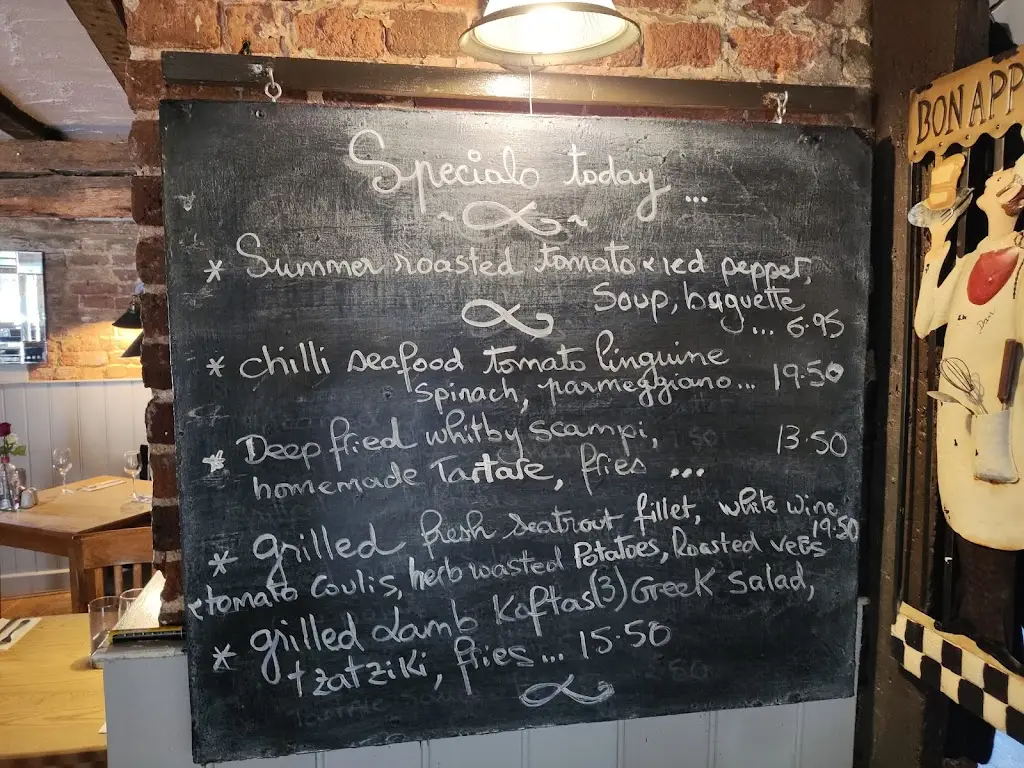 Specials today ...
* Summer roasted tomato & red pepper,
Soup, baguette
... 6.95
* chilli seafood tomato linguine
Spinach, parmeggiano... 19.50
* Deep fried whitby scampi, 13.50
homemade Tartare, fries ...
* grilled fresh seatrout fillet, white wine
19.50
tomato coulis, herb roasted Potatoes, Roasted veEs
* grilled Lamb Koftas(3) Greek Salad,
tzatziki, fries... 15.50
BON APP
Dan